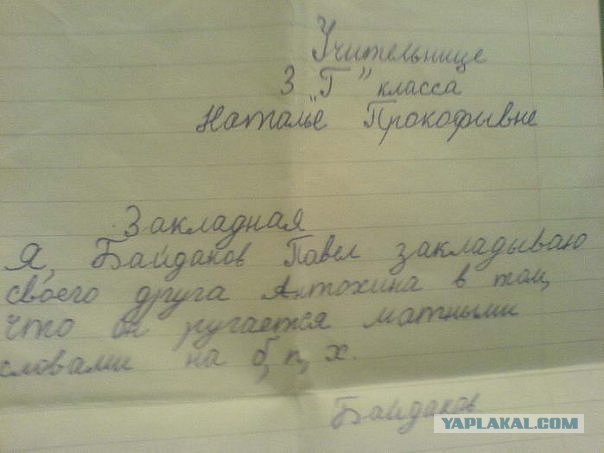 Учительнице
3 "Г" класса
Наталье Прокофивне
Закладная
Я, Байдаков Павел закладываю
своего друга Антохина в том,
что он ругается матными
словами на б, п, х.
Байдаков.
YAPLAKAL.COM